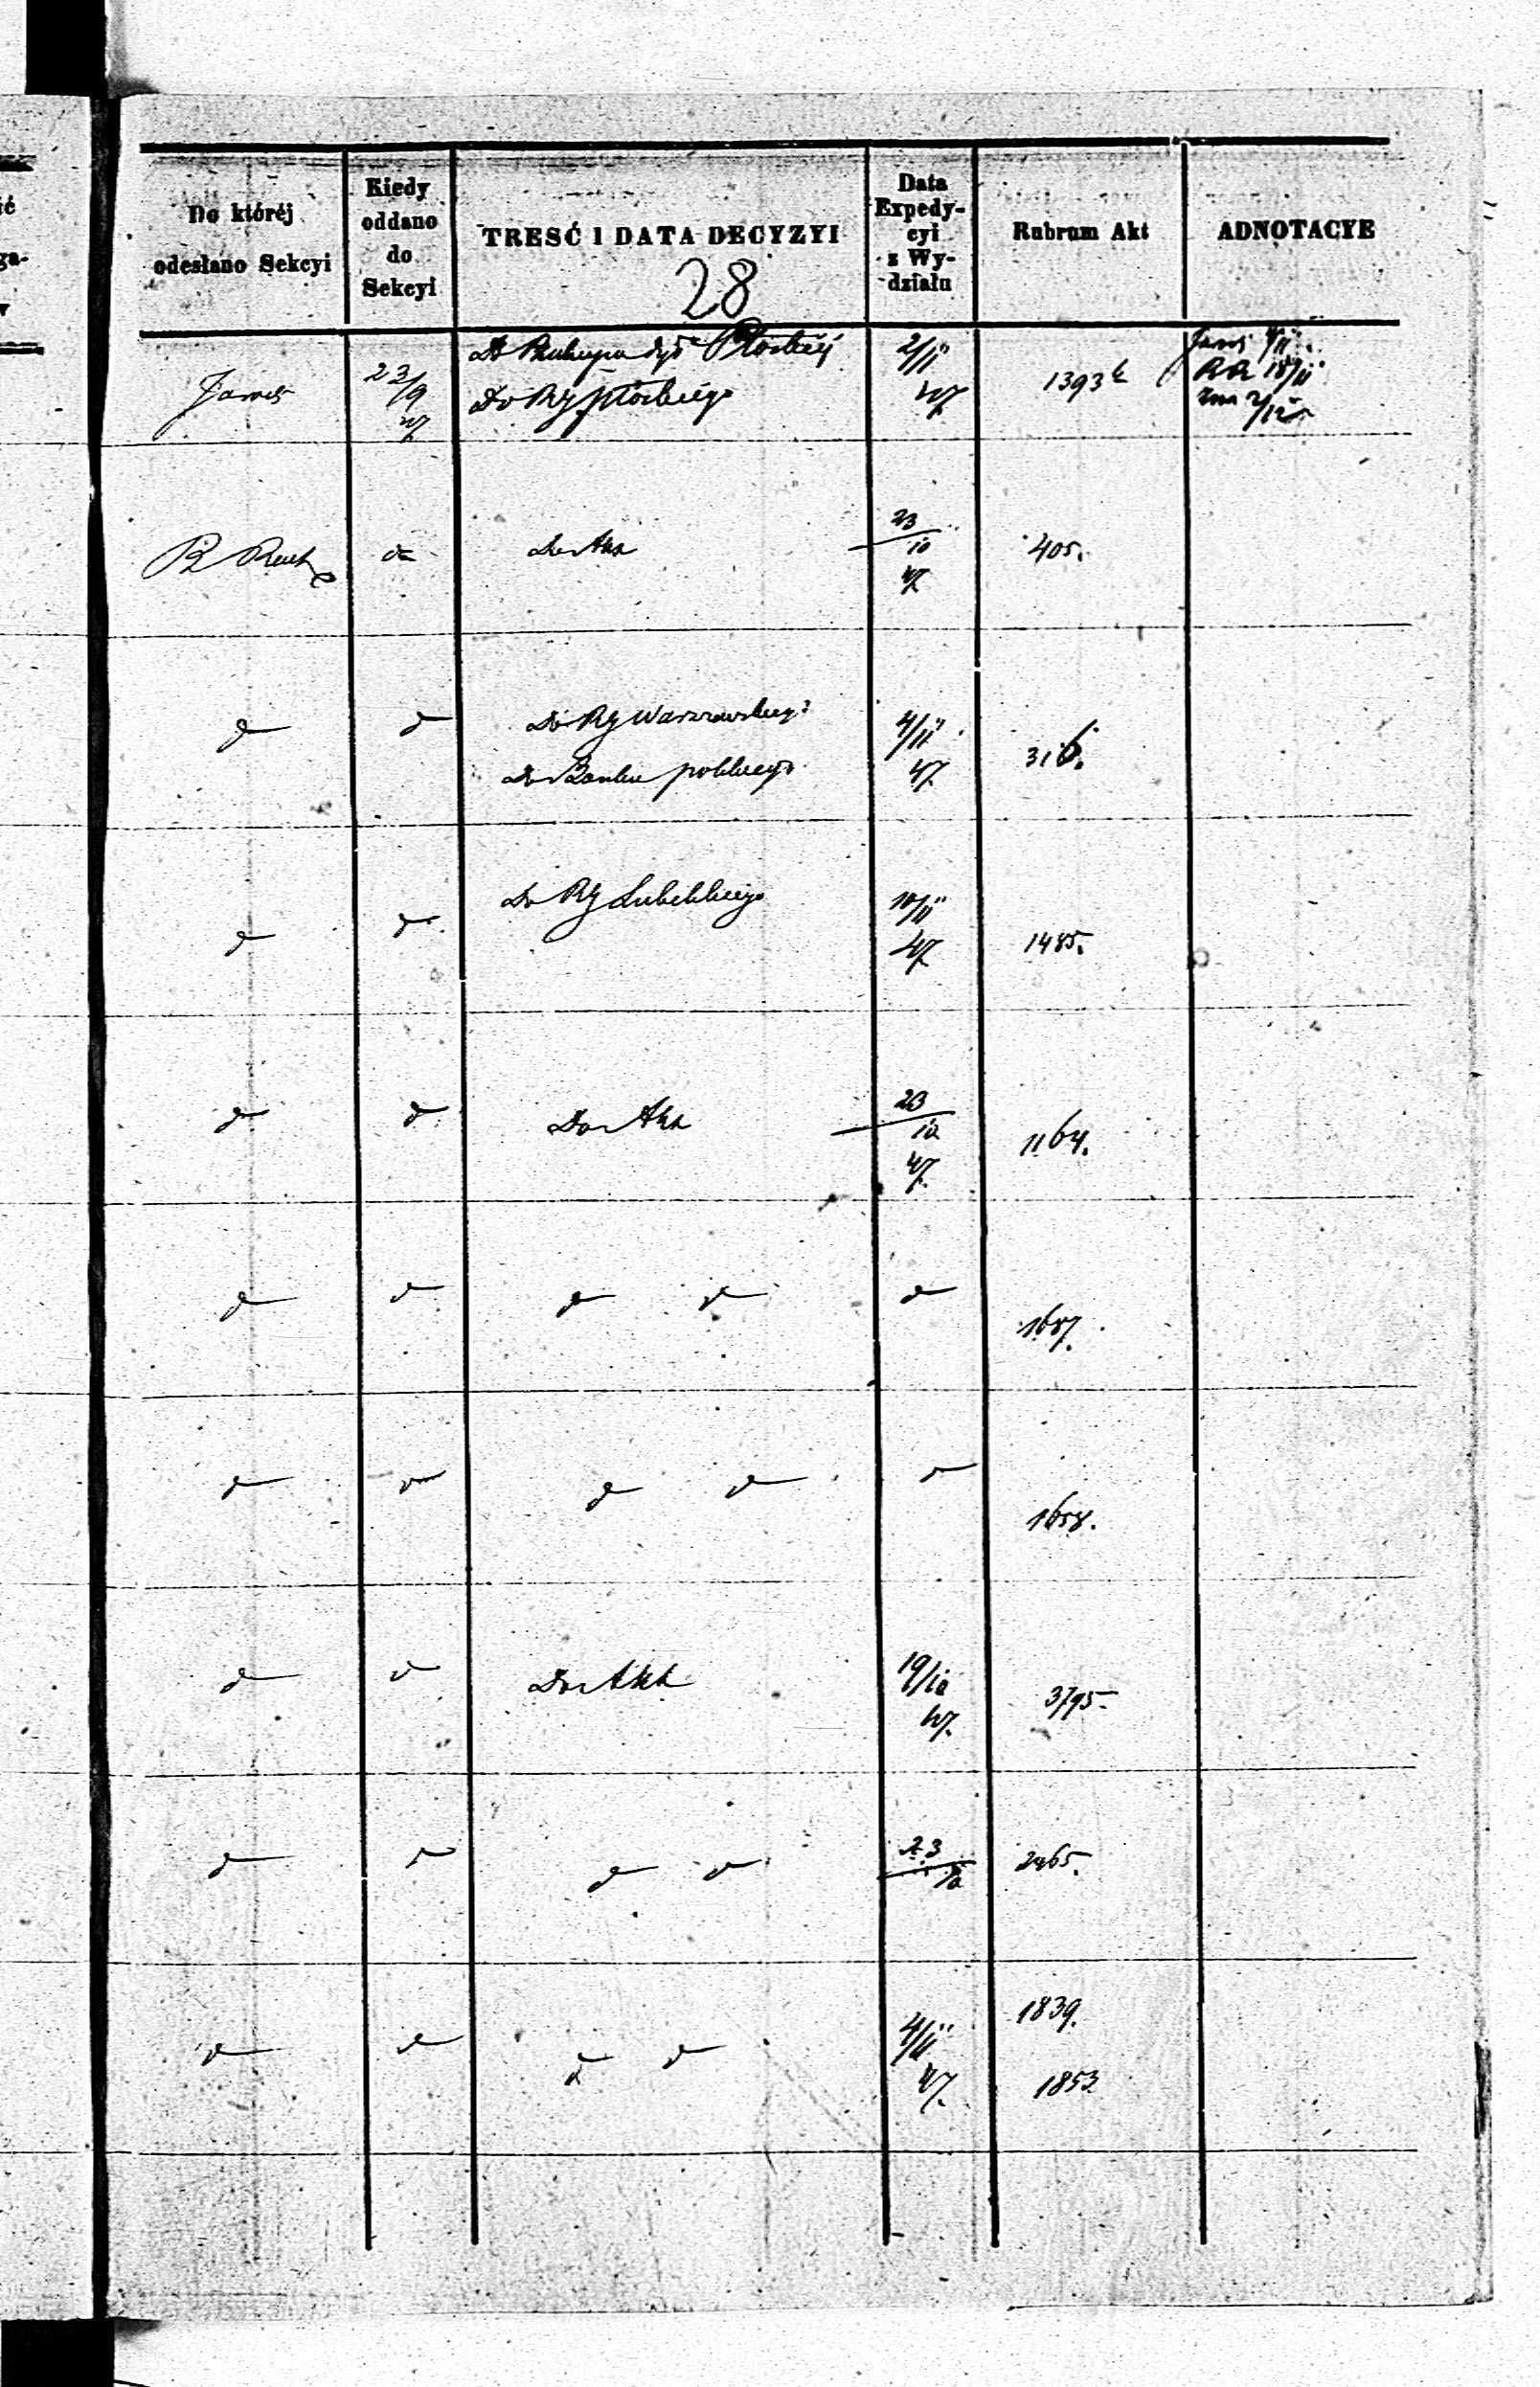 Do któréj
odesłano Sekcyi
Kiedy
oddano
do
Sekcyi
TRESĆ I DATA DECYZYI
28
Data
Expedy-
cyi
z Wy-
działu
Rubrum Akt
ADNOTACYE
23/9
Do Biskupa Dyc Płockiej
Do RG Płockiego
2/11
1393
18/11
2/12
do
Do Akt
23/10
405.
d
d
Do RG Warszawskiego
Do Banku polskiego
4/11
316.
d
d
Do RG Lubelskiego
10/11
1485.
d
d
Do Akt
23/10
1164.
d
d
d d
d
1657.
d
d
d d
d
1658.
d
d
Do Akt
19/10
3795.
d
d
d d
23/10
2465.
d
d
d d
4/11
1839.
1853